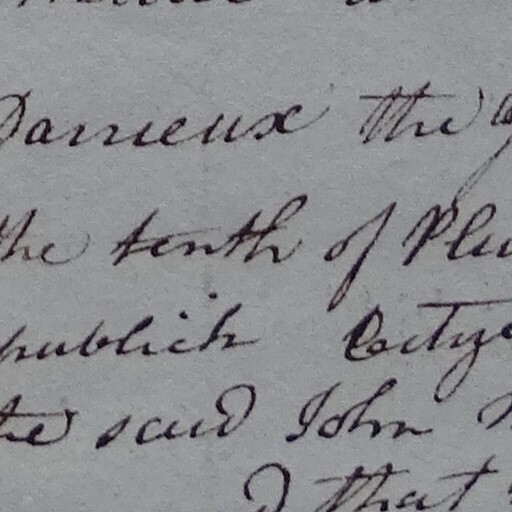 Darrieux the
the tenth of Plu
publick
the said John
that